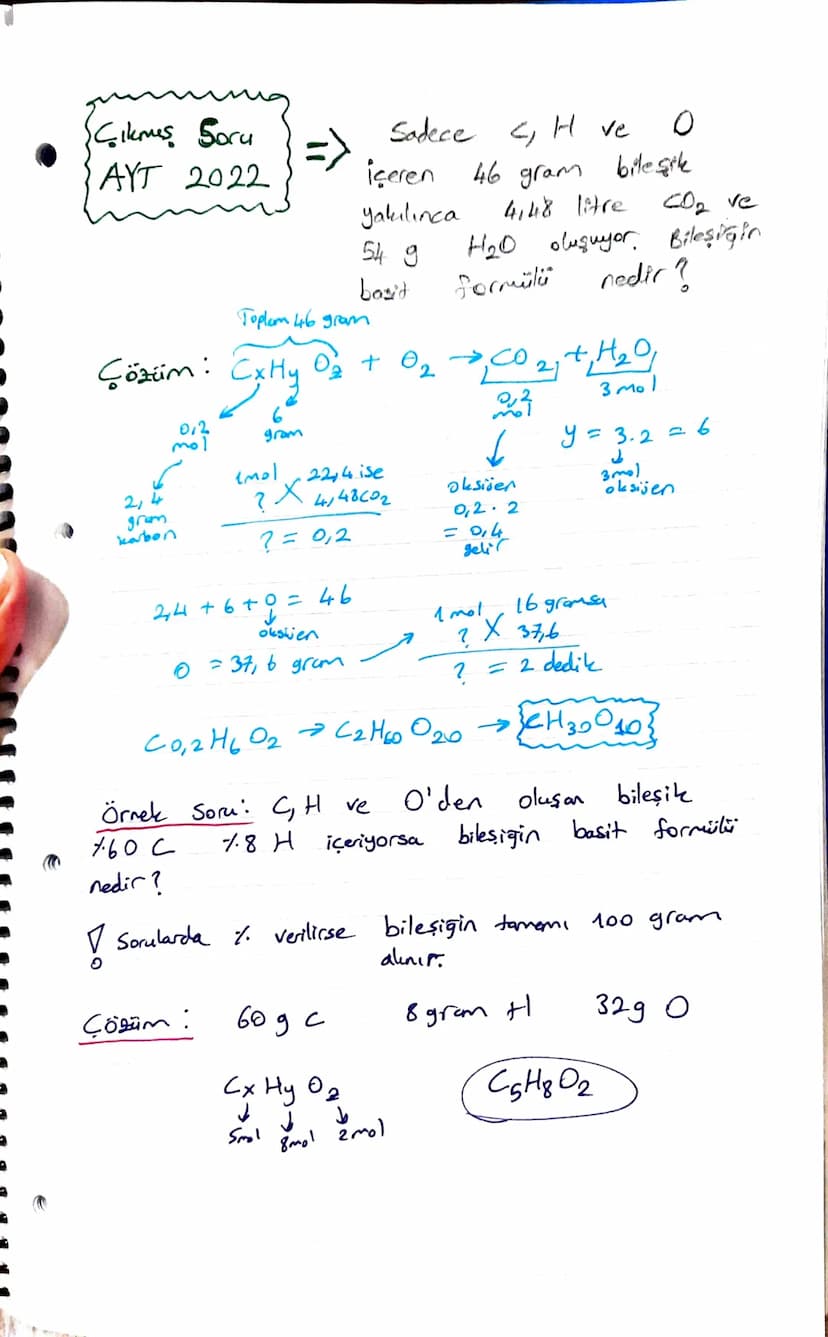 Çıkmış Soru
AYT 2022
=> Sadece C, H ve O
içeren 46 gram bileşik
yakılınca 4,48 litre CO2 ve
54 g H2O oluşuyor. Bileşiğin
basit formülü nedir?
Toplam 46 gram
Çözüm: CxHyOz + O2 → CO2 + H2O
0,2 mol
6 gram
0,2 mol
3 mol
y = 3.2 = 6
3mol
oksijen
2,4
gram
karbon
1mol 22,4 ise
? X 4,48CO2
? = 0,2
oksijen
0,2 . 2
= 0,4
gelir
2,4 + 6 + O = 46
oksijen
O = 37,6 gram
1 mol 16 gramsa
? X 37,6
? = 2 dedik
C0,2H6O2 → C2H60O20 → CH30O10
Örnek Soru: C, H ve O'den oluşan bileşik
%60 C %8 H içeriyorsa bileşiğin basit formülü
nedir?
! Sorularda % verilirse bileşiğin tamamı 100 gram
alınır.
Çözüm: 60 g C 8 gram H 32g O
CxHyOz
5mol 8mol 2mol
C5H8O2